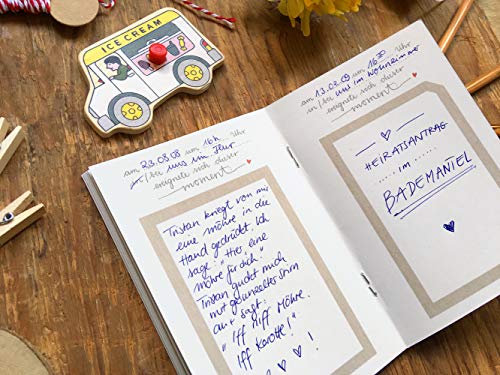 ICE CREAM
am 23.08.08 um 16h Uhr
in/bei uns im Flur
ereignete sich dieser
moment
Tristan kriegt von mir
eine Möhre in die
Hand gedrückt. Ich
sage: "Hier eine
Möhre für dich."
Tristan guckt mich
mit gerunzelter Stirn
an + sagt:
"Iff niff Möhre.
Iff Karotte!"
!
am 13.02.09 um 16.30 Uhr
in/bei uns im Wohnzimmer
ereignete sich dieser
moment
HEIRATSANTRAG
..... im ......
BADEMANTEL